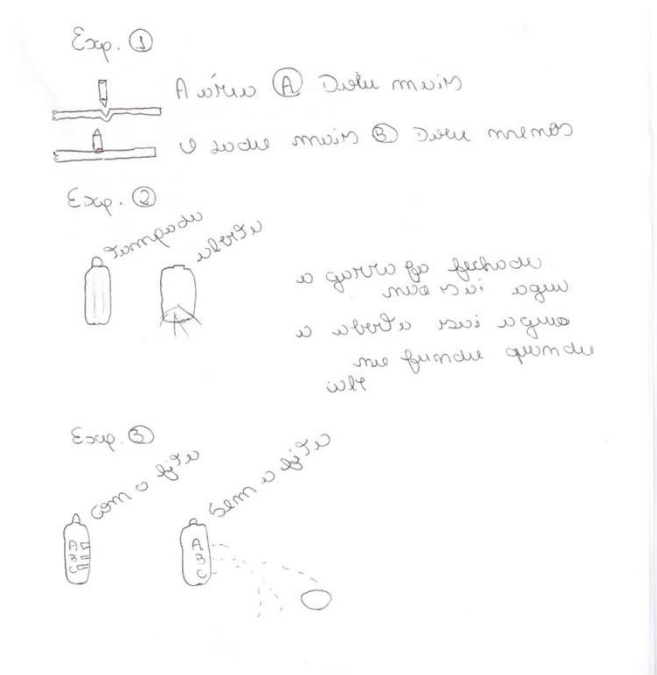 Exp. ①
A área Ⓐ Doeu mais
mais Ⓑ Doeu menos
Exp. ②
Tampada
aberta
a garrafa fechada
não sai agua
a aberta sai agua
Exp. ③
com a fita
sem a fita
A
B
C
A
B
C